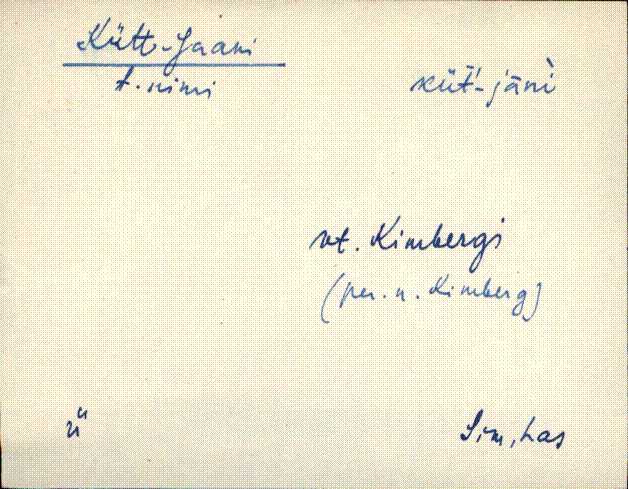 Kütt-Jaani
t. nimi
küt̄'-jāni̇̀
vt. Kimbergi
(per. n. Kimberg)
ü
Sim, Las